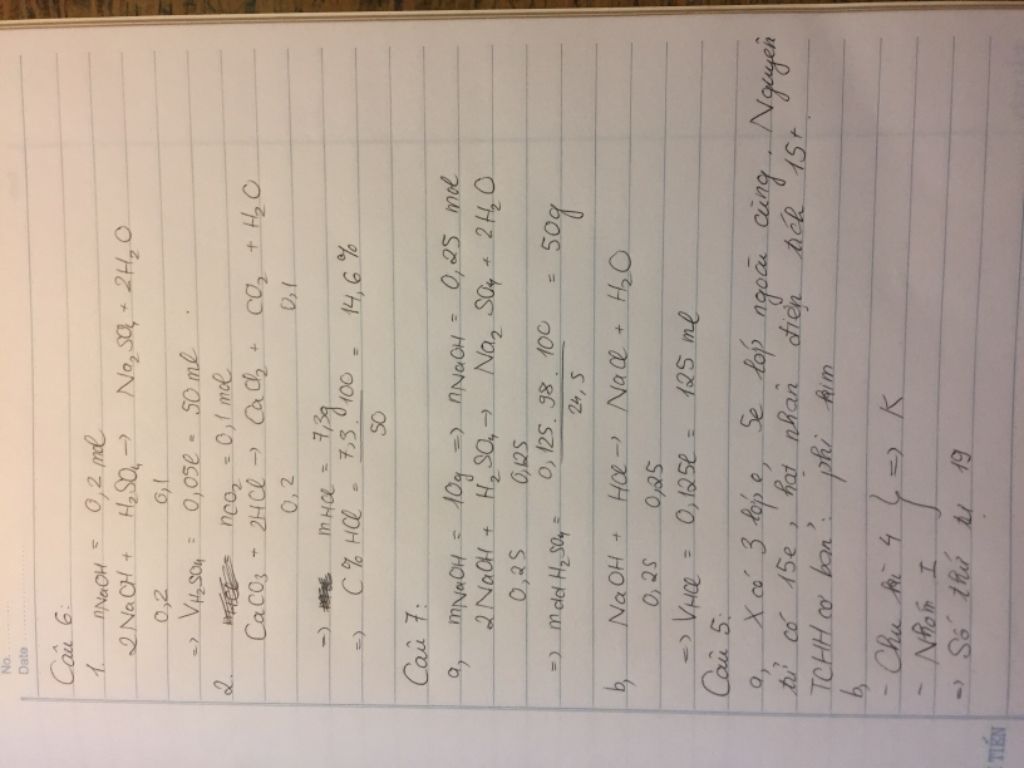 No.
Date
Câu 6:
1. nNaOH = 0,2 mol
2NaOH + H2SO4 → Na2SO4 + 2H2O
0,2 0,1
=> VH2SO4 = 0,05l = 50 ml
2. nCO2 = 0,1 mol
CaCO3 + 2HCl → CaCl2 + CO2 + H2O
0,2 0,1
=> mHCl = 7,3g
=> C% HCl = 7,3 . 100 = 14,6 %
50
Câu 7:
a, mNaOH = 10g => nNaOH = 0,25 mol
2NaOH + H2SO4 → Na2SO4 + 2H2O
0,25 0,125
=> mddH2SO4 = 0,125 . 98 . 100 = 50g
24,5
b, NaOH + HCl → NaCl + H2O
0,25 0,25
=> VHCl = 0,125l = 125 ml
Câu 5:
a, X có 3 lớp e, 5e lớp ngoài cùng. Nguyên
tử có 15e, hạt nhân điện tích 15+
TCHH cơ bản: phi kim
b,
- Chu kì 4 } => K
- Nhóm I
=> Số thứ tự 19
TIẾN